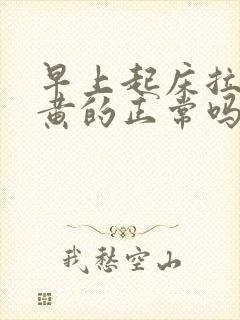 早上起床拉
黄的正常吗
我愁空山